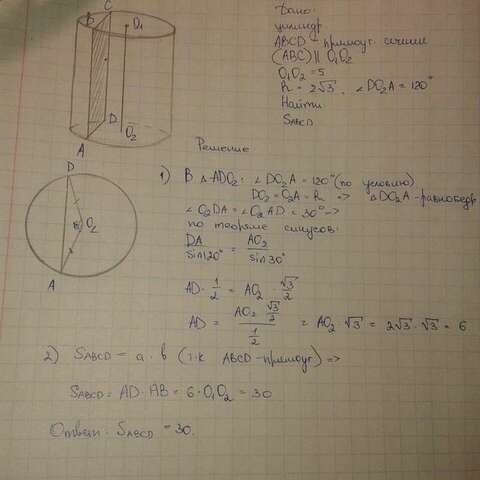 C
B
O₁
D
A
O₂
Дано:
цилиндр
ABCD - прямоуг. сечение
(ABC) || O₁O₂
O₁O₂ = 5
R = 2√3, ∠DO₂A = 120°
Найти
SABCD
Решение
D
O₂
A
1) В △ADO₂: ∠DO₂A = 120° (по условию)
DO₂ = O₂A = R => △DO₂A - равнобедр
∠O₂DA = ∠O₂AD = 30° =>
по теореме синусов:
DA/sin120° = AO₂/sin30°
AD · 1/2 = AO₂ · √3/2
AD = (AO₂ · √3/2)/(1/2) = AO₂ · √3 = 2√3 · √3 = 6
2) SABCD = a · b (т.к ABCD - прямоуг) =>
SABCD = AD · AB = 6 · O₁O₂ = 30
Ответ: SABCD = 30.